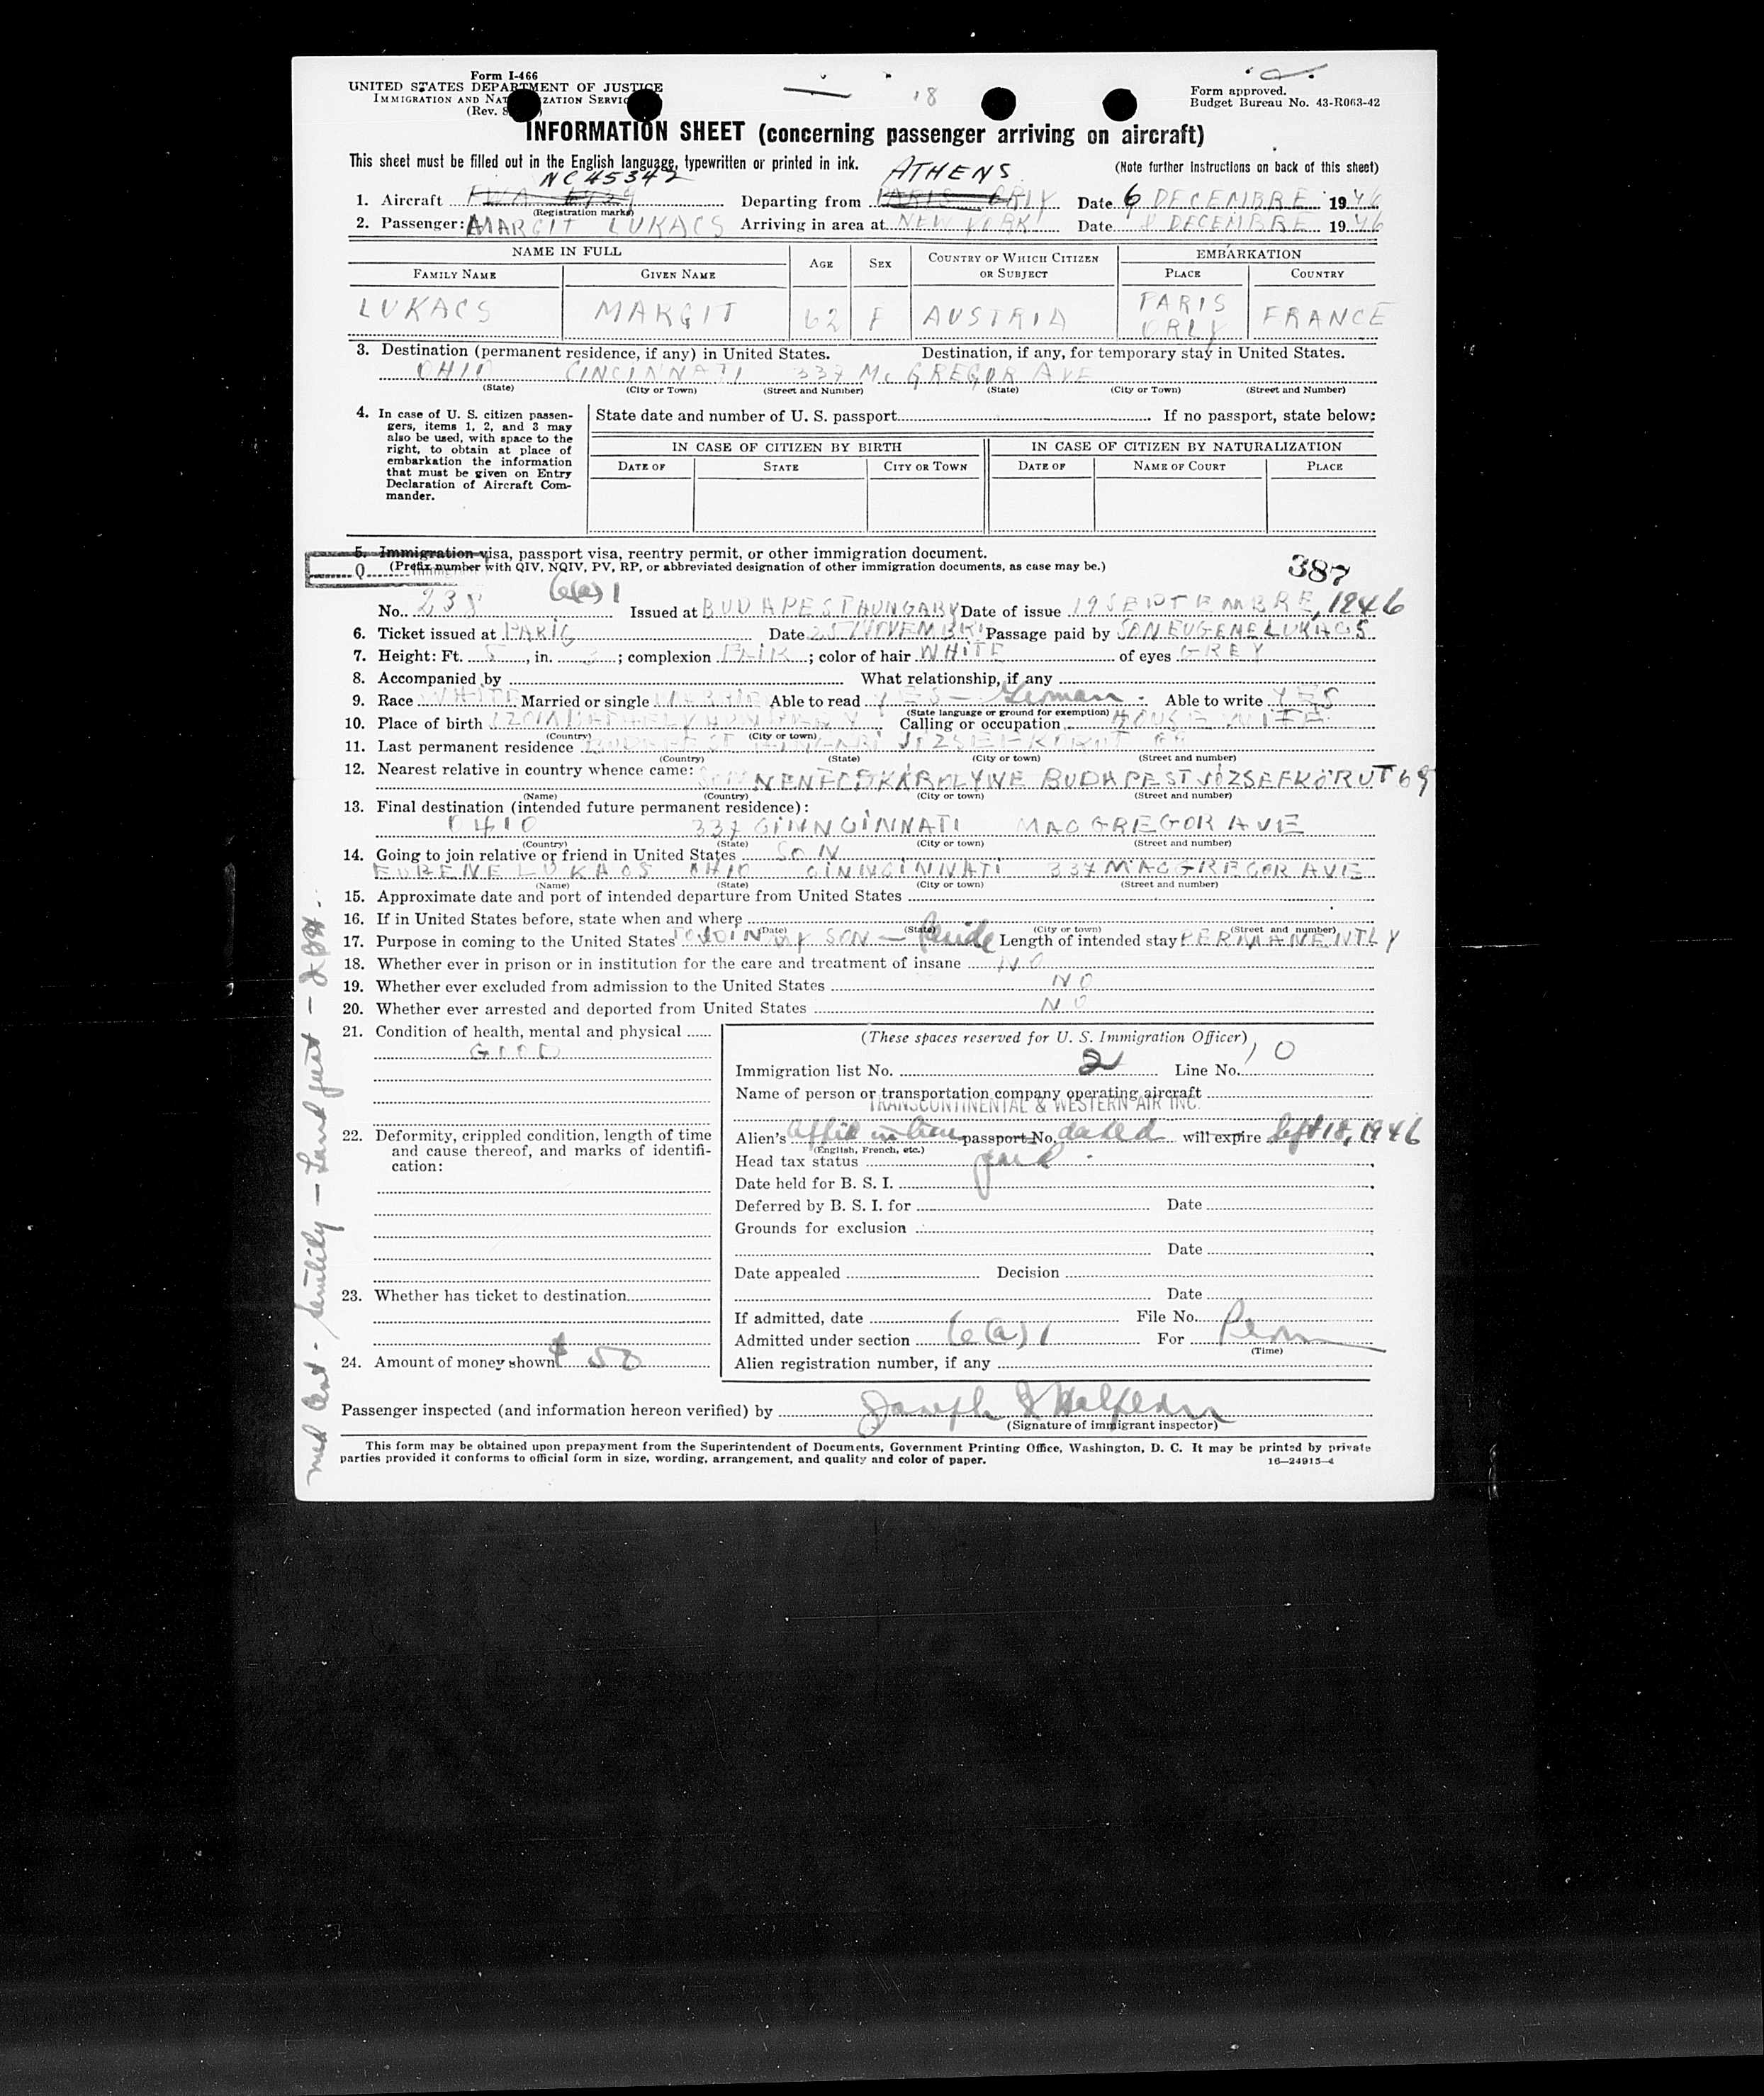 Form I-466
UNITED STATES DEPARTMENT OF JUSTICE
IMMIGRATION AND NATURALIZATION SERVICE
(Rev.
18
Form approved.
Budget Bureau No. 43-R063-42
INFORMATION SHEET (concerning passenger arriving on aircraft)
This sheet must be filled out in the English language, typewritten or printed in ink.
(Note further instructions on back of this sheet)
NC45342 ATHENS
1. Aircraft Departing from PARIS ORLY Date 6 DECEMBRE 1946
(Registration marks)
2. Passenger: MARGIT LUKACS Arriving in area at NEW YORK Date 8 DECEMBRE 1946
NAME IN FULL AGE SEX COUNTRY OF WHICH CITIZEN OR SUBJECT EMBARKATION
FAMILY NAME GIVEN NAME PLACE COUNTRY
LUKACS MARGIT 62 F AUSTRIA PARIS ORLY FRANCE
3. Destination (permanent residence, if any) in United States. Destination, if any, for temporary stay in United States.
OHIO CINCINNATI 337 Mc GREGOR AVE
(State) (City or Town) (Street and Number) (State) (City or Town) (Street and Number)
4. In case of U. S. citizen passen-
gers, items 1, 2, and 3 may
also be used, with space to the
right, to obtain at place of
embarkation the information
that must be given on Entry
Declaration of Aircraft Com-
mander.
State date and number of U. S. passport If no passport, state below:
IN CASE OF CITIZEN BY BIRTH IN CASE OF CITIZEN BY NATURALIZATION
DATE OF STATE CITY OR TOWN DATE OF NAME OF COURT PLACE
5. Immigration visa, passport visa, reentry permit, or other immigration document.
Q (Prefix number with QIV, NQIV, PV, RP, or abbreviated designation of other immigration documents, as case may be.)
387
6(a)1
No. 238 Issued at BUDAPEST HUNGARY Date of issue 19 SEPTEMBRE, 1946
6. Ticket issued at PARIS Date 25 NOVEMBRE Passage paid by SON EUGENE LUKACS
7. Height: Ft. 5, in. 3; complexion FAIR; color of hair WHITE of eyes GREY
8. Accompanied by What relationship, if any
9. Race WHITE Married or single MARRIED Able to read YES - German. Able to write YES
(State language or ground for exemption)
10. Place of birth Calling or occupation HOUSE WIFE
(Country) (City or town)
11. Last permanent residence BUDAPEST HUNGARY JOZSEF KORUT 69
(Country) (State) (City or town) (Street and number)
12. Nearest relative in country whence came:
KAROLYNE BUDAPEST JOZSEFKÖRUT 69
(Name) (Country) (City or town) (Street and number)
13. Final destination (intended future permanent residence):
OHIO 337 CINNCINNATI MAC GREGOR AVE
(Country) (State) (City or town) (Street and number)
14. Going to join relative or friend in United States SON
EUGENE LUKACS OHIO CINNCINNATI 337 MACGREGOR AVE
(Name) (State) (City or town) (Street and number)
15. Approximate date and port of intended departure from United States
16. If in United States before, state when and where
(Date) (State) (City or town) (Street and number)
17. Purpose in coming to the United States TO JOIN MY SON - Reside Length of intended stay PERMANENTLY
18. Whether ever in prison or in institution for the care and treatment of insane NO
19. Whether ever excluded from admission to the United States NO
20. Whether ever arrested and deported from United States NO
21. Condition of health, mental and physical
GOOD
22. Deformity, crippled condition, length of time
and cause thereof, and marks of identifi-
cation:
23. Whether has ticket to destination
24. Amount of money shown $ 50
(These spaces reserved for U. S. Immigration Officer)
Immigration list No. 2 Line No. 10
Name of person or transportation company operating aircraft
TRANSCONTINENTAL & WESTERN AIR INC.
Alien's Affid in lieu passport No. dated will expire Sept 18, 1946
(English, French, etc.)
Head tax status paid
Date held for B. S. I.
Deferred by B. S. I. for Date
Grounds for exclusion
Date
Date appealed Decision
Date
If admitted, date File No.
Admitted under section 6(a)1 For Perm
(Time)
Alien registration number, if any
Passenger inspected (and information hereon verified) by Joseph Halpern
(Signature of immigrant inspector)
This form may be obtained upon prepayment from the Superintendent of Documents, Government Printing Office, Washington, D. C. It may be printed by private
parties provided it conforms to official form in size, wording, arrangement, and quality and color of paper.
16—24915-4
med Cert - senility -